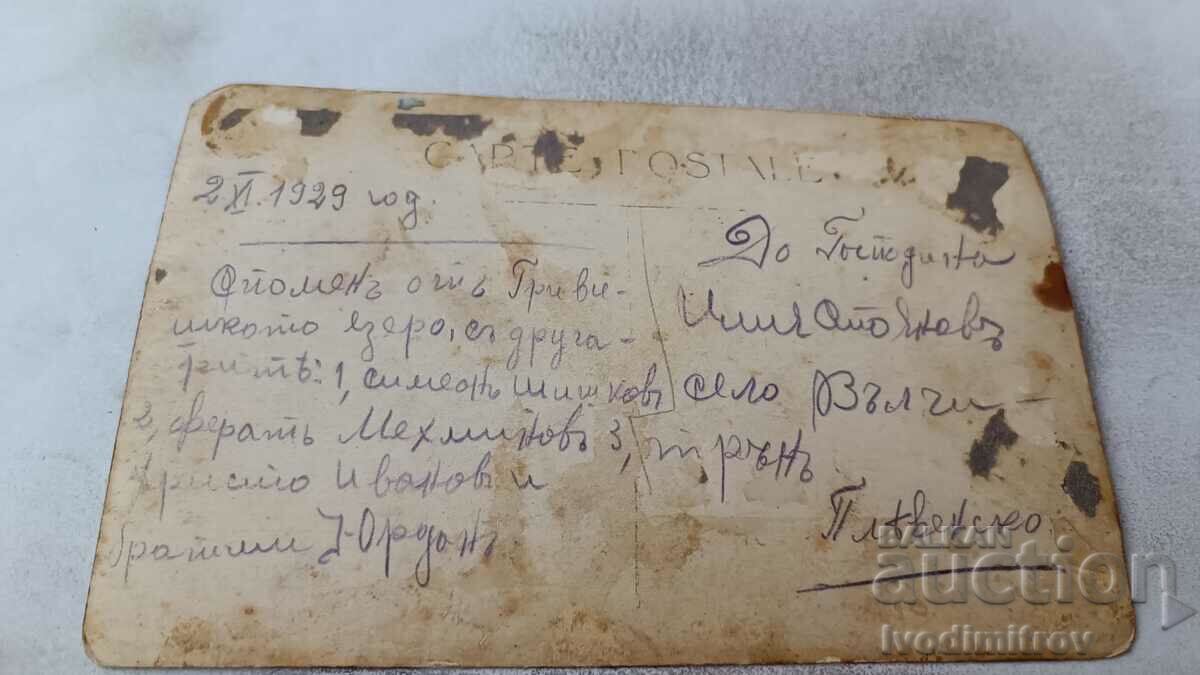 CARTE POSTALE
2 XI. 1929 год.
Споменъ отъ Гриви-
шкото езеро, съ друга-
ритѣ: 1, Симеонъ Шишковъ
2, Ферать Мехминовъ 3,
Христо Ивановъ и
братчии Йорданъ.
До Господина
Илия Стояновъ
село Вълчи-
трънъ
Плѣвенско.
БАЛКАН
auction
Ivodimitrov